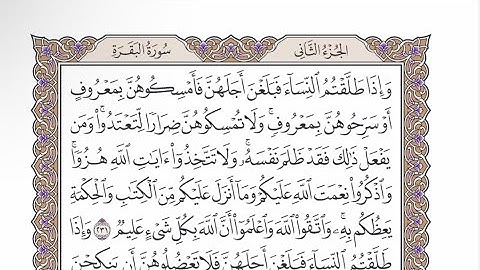 الجُزْءُ الثَّانِي سُورَةُ البَقَرَةِ
وَإِذَا طَلَّقْتُمُ ٱلنِّسَآءَ فَبَلَغْنَ أَجَلَهُنَّ فَأَمْسِكُوهُنَّ بِمَعْرُوفٍ
أَوْ سَرِّحُوهُنَّ بِمَعْرُوفٍۚ وَلَا تُمْسِكُوهُنَّ ضِرَارًا لِّتَعْتَدُوا۟ۚ وَمَن
يَفْعَلْ ذَٰلِكَ فَقَدْ ظَلَمَ نَفْسَهُۥۚ وَلَا تَتَّخِذُوٓا۟ ءَايَٰتِ ٱللَّهِ هُزُوًاۚ
وَٱذْكُرُوا۟ نِعْمَتَ ٱللَّهِ عَلَيْكُمْ وَمَآ أَنزَلَ عَلَيْكُم مِّنَ ٱلْكِتَٰبِ وَٱلْحِكْمَةِ
يَعِظُكُم بِهِۦۚ وَٱتَّقُوا۟ ٱللَّهَ وَٱعْلَمُوٓا۟ أَنَّ ٱللَّهَ بِكُلِّ شَىْءٍ عَلِيمٌ ٢٣١ وَإِذَا
طَلَّقْتُمُ ٱلنِّسَآءَ فَبَلَغْنَ أَجَلَهُنَّ فَلَا تَعْضُلُوهُنَّ أَن يَنكِحْنَ